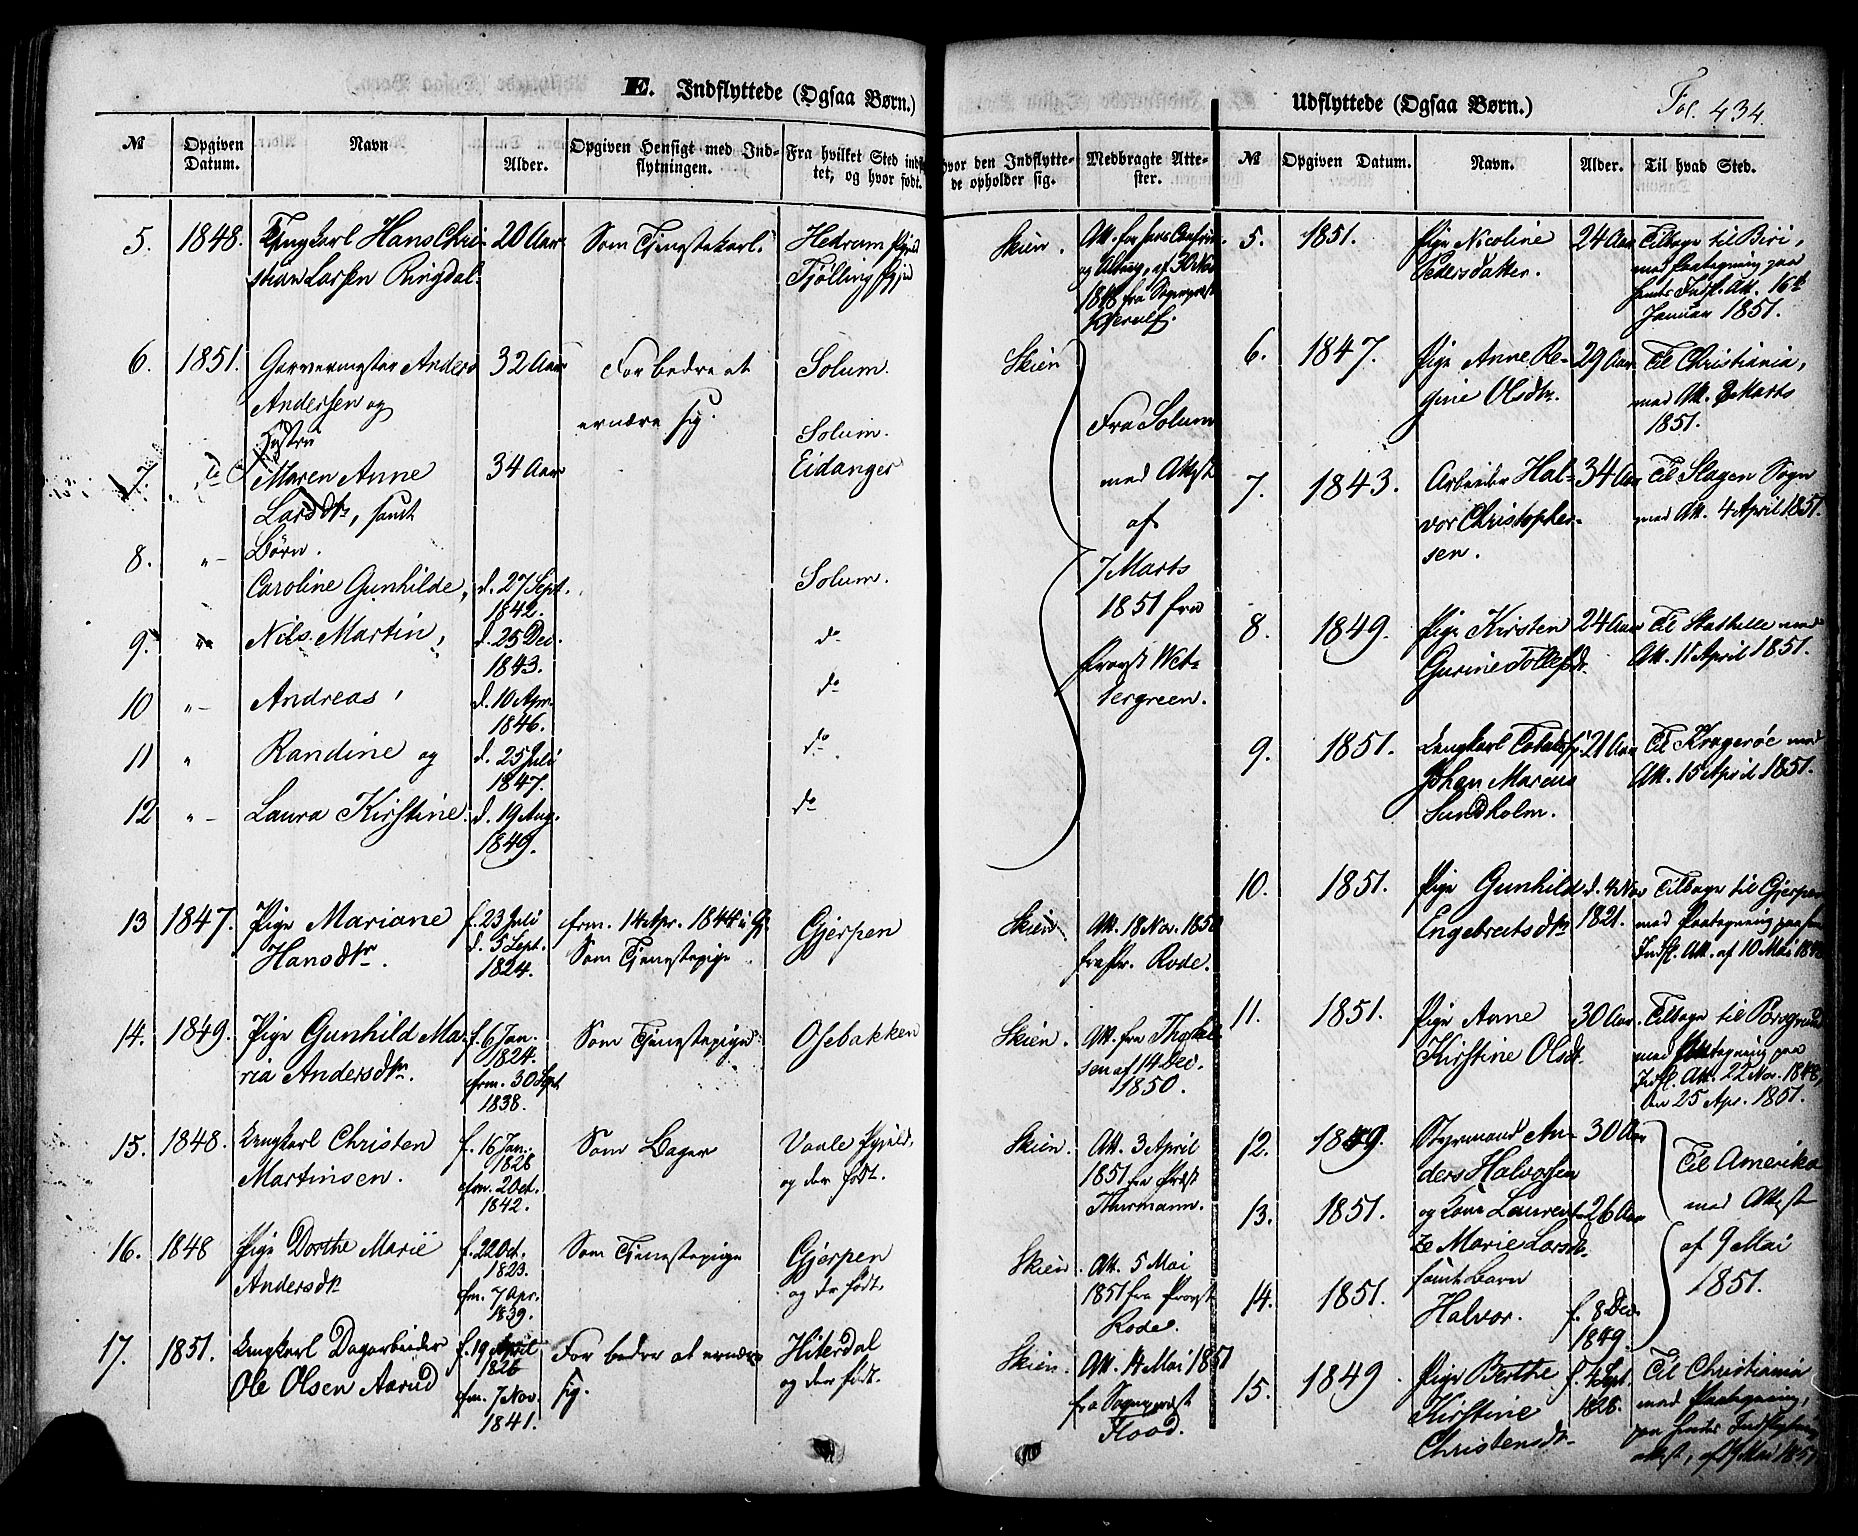 E. Indflyttede (Ogsaa Børn.)
Udflyttede (Ogsaa Børn.)
Fol. 434.
№
Opgiven Datum.
Navn
Alder.
Opgiven Hensigt med Ind-
flytningen.
Fra hvilket Sted indflyt-
tet, og hvor født.
hvor den Indflytte-
de opholder sig.
Medbragte Atte-
ster.
№
Opgiven Datum.
Navn.
Alder.
Til hvad Sted.
5. 1848. Ungkarl Hans Chri- 20 Aar Som Tjenestekarl. Hedrum Pgjeld Skien.
stian Larsen Ringdal. Tjølling Pgjeld
Att. for hans Confirm.
og Attest, af 30 Nov
1848 fra Sognepræst
Kjerulf.
6. 1851. Garvermester Anders 32 Aar For bedre at Solum. Skien
Andersen og ernære sig. Solum.
Hustru
7. do Maren Anne 34 Aar Eidanger
Larsdtr, samt
8. " - Børn.
Caroline Gunhilde, d. 27 Sept. Solum.
1842.
9. " Nils Martin, d. 25 Dec. do
1843.
10 " - Andreas, d. 10 Apr. do
1846.
11 " Randine og d. 25 Juli do
1847.
12 " - Laura Kirstine. d. 19 Aug. do
1849.
Fra Solum
med Attest
af
7 Marts
1851 fra
Provst Wet-
tergreen.
13 1847. Pige Mariane f. 23 Juli cfrm. 14 Apr. 1844 i Gj. Gjerpen Skien. Att. 18 Nov. 1850
Hansdtr. d. 5 Sept. Som Tjenestepige fra Pr. Rode.
1824.
14. 1849. Pige Gunhild Ma- f. 6 Jan. Som Tjenestepige Osebakken Skien. Att. fra
ria Andersdtr. 1824. sen af 14 Dec.
cfrm. 30 Sept 1850.
1838.
15. 1848. Ungkarl Christen f. 16 Jan. Som Bager Vaale Pgjeld, Skien. Att. 3 April
Martinsen. 1826 og der født. 1851 fra Præst
cfrm. 2 Oct. Thurmann.
1842.
16. 1848 Pige Dorthe Marie f. 22 Oct. Som Tjenestepige Gjerpen Skien. Att. 5 Mai
Andersdtr 1823. og der født. 1851 fra Provst
cfrm. 7 Apr. Rode.
1839.
17. 1851. Ungkarl Dagarbeider f. 19 April For bedre at ernære Hiterdal Skien. Att. 14 Mai 1851
Ole Olsen Aarud 1826 sig. og der født. fra Sognepræst
cfrm. 7 Nov. Flood.
1841.
5. 1851. Pige Nicoline 24 Aar Tilbage til Biri,
Pedersdatter. med Paategning paa
hendes Indfl. Att. 16th
Januar 1851.
6. 1847. Pige Anne Re- 29 Aar Til Christiania,
gine Olsdtr. med Att. 2 Marts
1851.
7. 1843. Arbeider Hal- 34 Aar Til Slagen Sogn
vor Christopher- med Att. 4 April 1851.
sen.
8. 1849. Pige Kirsten 24 Aar Til Stathelle med
Gurine Tollefsdtr. Att. 11 April 1851.
9. 1851. Ungkarl 21 Aar Til Kragerøe med
Johan Marcus Att. 15 April 1851.
Sundholm.
10. 1851. Pige Gunhild d. 4 Nov Tilbage til Gjerpen
Engebretsdtr 1821. med Paategning paa
Indfl. Att. af 10 Mai 1848
11. 1851. Pige Anne 30 Aar. Tilbage til Porsgrund
Kirstine Olsdtr. med Paategning paa
Indfl. Att. 22 Nov. 1848,
den 25 Apr. 1851.
12. 1849. Styrmand An- 30 Aar
ders Halvorsen
13. 1851. og Kone Laurent- 26 Aar
ze Marie Larsdtr.
samt Barn
14. 1851. Halvor. f. 8 Dec.
1849.
Til Amerika
med Attest
af 9 Mai
1851.
15. 1849 Pige Berthe f. 4 Sept. Til Christiania
Kirstine 1828. med Paategning,
Christensdtr. paa hendes Indflytnings
attest, af 19 Mai 1851